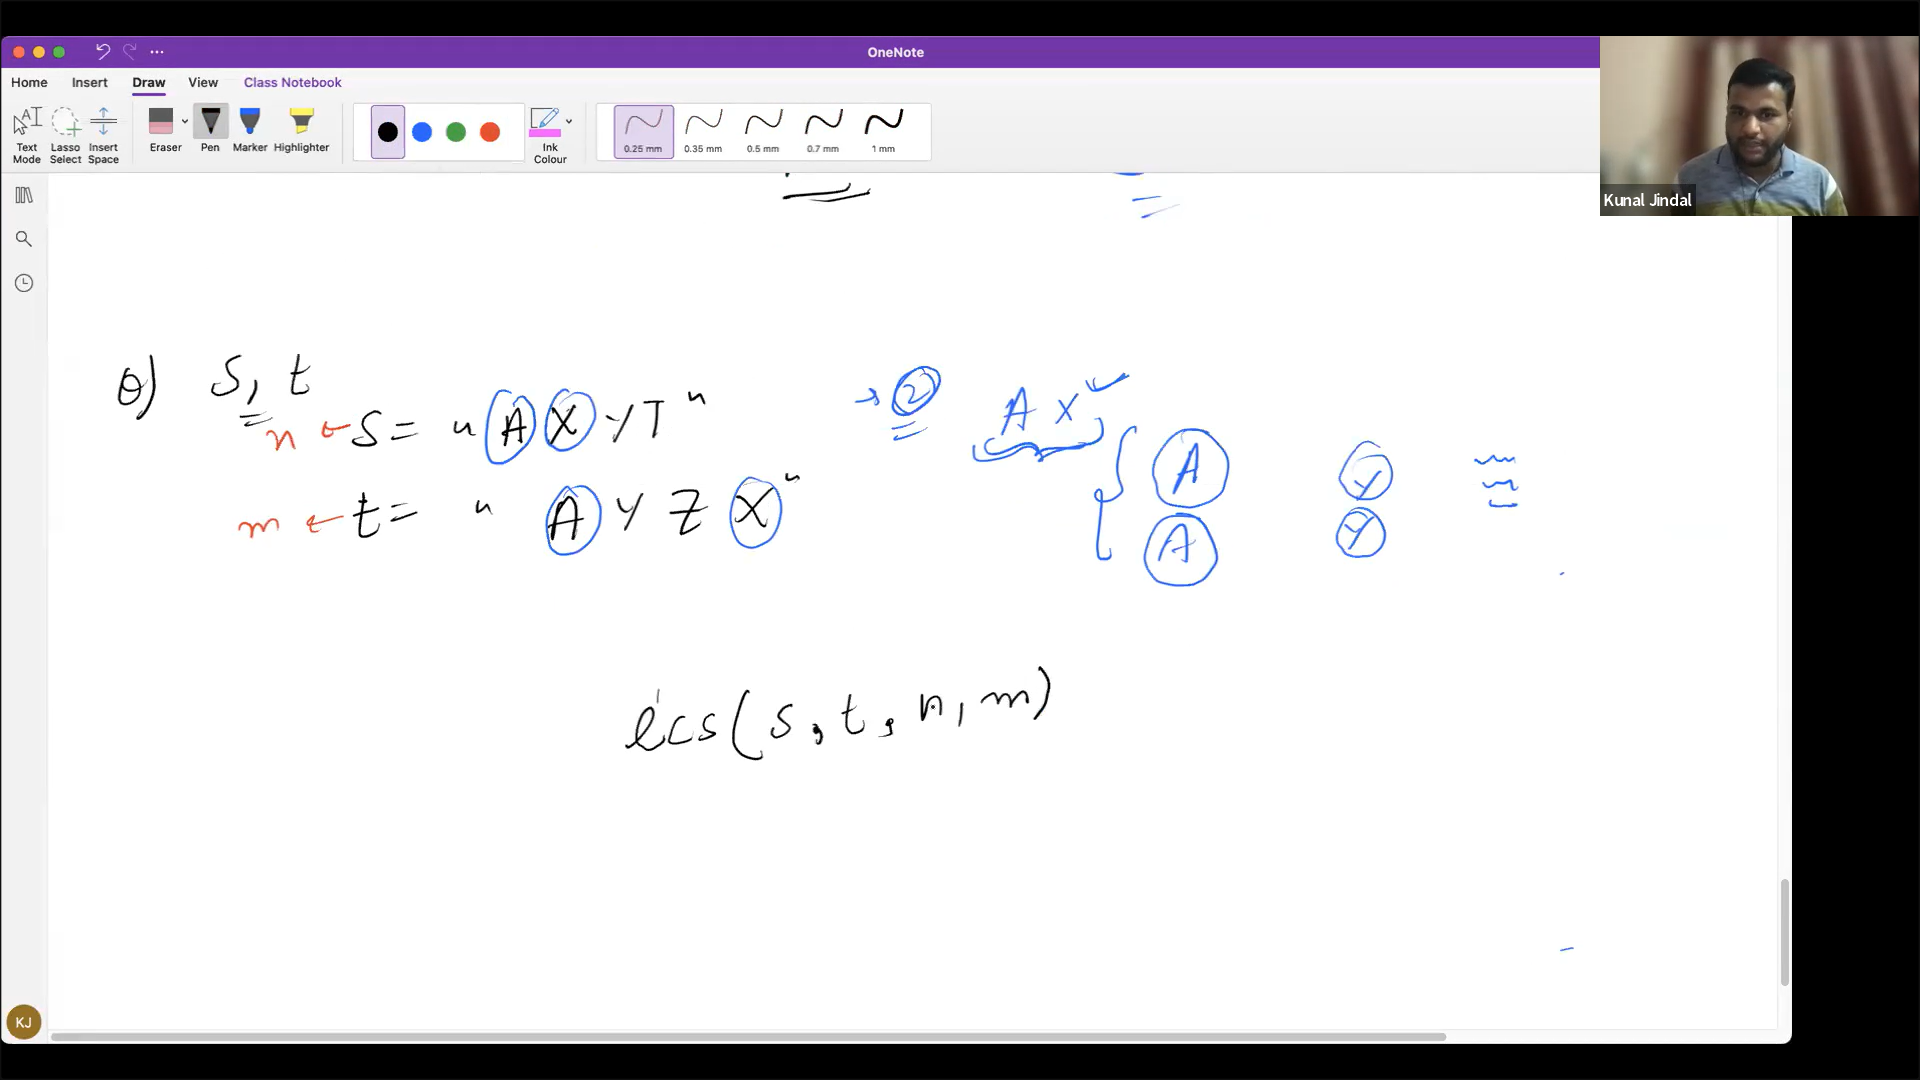 OneNote
Home Insert Draw View Class Notebook
Text Mode Lasso Select Insert Space Eraser Pen Marker Highlighter Ink Colour 0.25 mm 0.35 mm 0.5 mm 0.7 mm 1 mm
Kunal Jindal
Q) S, t
n ← S = " A X Y T " → 2 A X ✓
A Y
m ← t = " A Y Z X "
A Y
lcs(s, t, n, m)
KJ